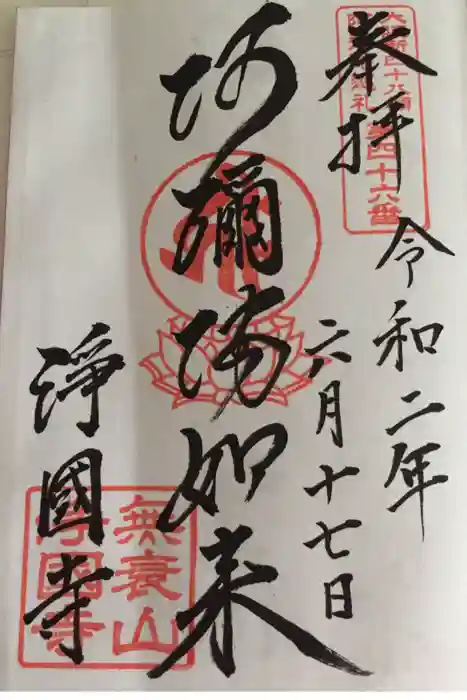 奉拝
第四十六番
令和二年
六月十七日
阿彌陀如来
淨國寺
無衰山
淨國寺